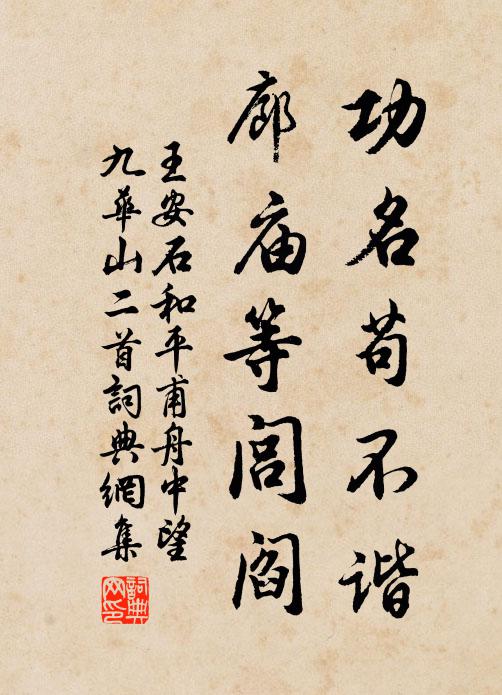 功名苟不谐
廊庙等闾阎
王安石和平甫舟中望
九华山二首词典网集
词典
网印